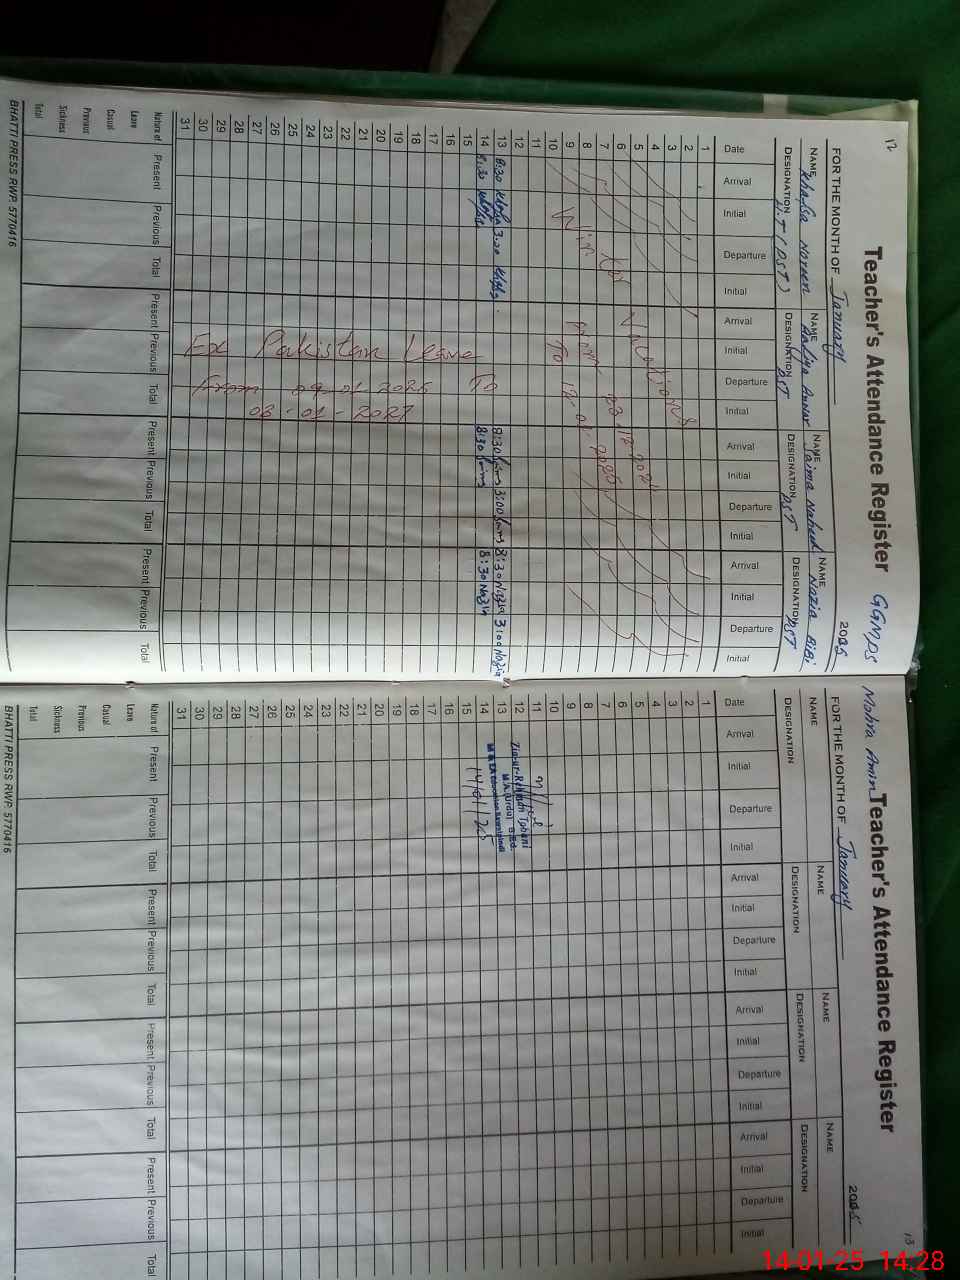 12
Teacher's Attendance Register GGMPS
FOR THE MONTH OF January 2025
NAME Khafia Noreen NAME Aaliya Anwar NAME Saima Naheed NAME Nazia BiBi
DESIGNATION H.T (PST) DESIGNATION PST DESIGNATION PST DESIGNATION PST
Date Arrival Initial Departure Initial Arrival Initial Departure Initial Arrival Initial Departure Initial Arrival Initial Departure Initial
1
2
3
4
5
6
7
8
9
10
11
12
13 8:30 3:20 8:30 3:00 8:30 Nazia 3:00 Nazia
14 8:30 8:30 8:30 Nazia
15
16
17
18
19
20
21
22
23
24
25
26
27
28
29
30
31
Winter Vacations
From 23.12.2024
To 12-01-2025
Ex Pakistan Leave
From 09-01-2025 To
08-01-2027
Nature of Present Previous Total Present Previous Total Present Previous Total Present Previous Total
Leave
Casual
Previous
Sickness
Total
BHATTI PRESS RWP. 5770416
13
Mohra Amin Teacher's Attendance Register
FOR THE MONTH OF January 2025
NAME NAME NAME NAME
DESIGNATION DESIGNATION DESIGNATION DESIGNATION
Date Arrival Initial Departure Initial Arrival Initial Departure Initial Arrival Initial Departure Initial Arrival Initial Departure Initial
1
2
3
4
5
6
7
8
9
10
11
12
13
14
15
16
17
18
19
20
21
22
23
24
25
26
27
28
29
30
31
M.A. (Urdu) B.Ed.
M & EA Education Rawalpindi
14/01/25
Nature of Present Previous Total Present Previous Total Present Previous Total Present Previous Total
Leave
Casual
Previous
Sickness
Total
BHATTI PRESS RWP. 5770416
14-01-25 14:28